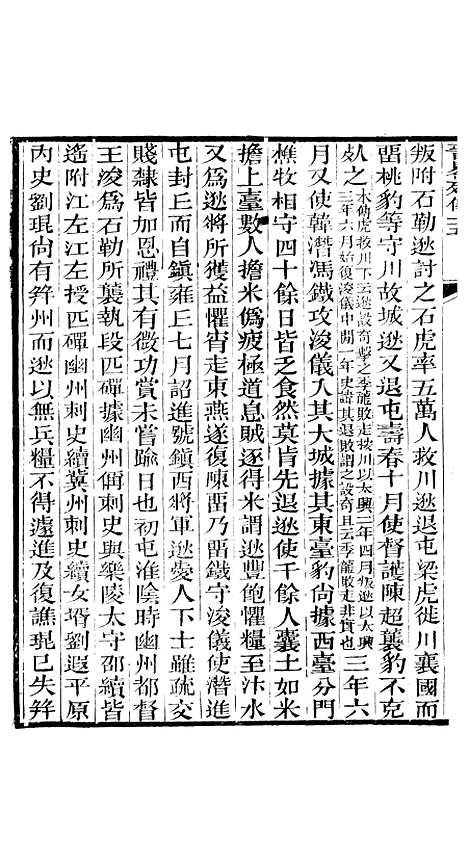 叛附石勒逖討之石虎率五萬人救川逖退屯梁虎徙川襄國而
畱桃豹等守川故城逖又退屯壽春十月使督護陳超襲豹不克
死之本傳虎救川下云逖設奇擊之季龍敗走按川以太興二年四月叛逖以太興
三年六月始復浚儀中閒一年史諱其退敗謂之設奇且云季龍敗走非實也三年六
月又使韓潛馮鐵攻浚儀入其大城據其東臺豹尙據西臺分門
樵牧相守四十餘日皆乏食然莫肯先退逖使千餘人囊土如米
擔上臺數人擔米僞疲極道息賊逐得米謂逖豐飽懼糧至汴水
又爲逖將所獲益懼宵走東燕遂復陳畱乃畱鐵守浚儀使潛進
屯封丘而自鎭雍丘七月詔進號鎭西將軍逖愛人下士雖疏交
賤隸皆加恩禮其有微功賞未嘗踰日也初屯淮陰時幽州都督
王浚爲石勒所襲執段匹磾據幽州偁刺史與樂陵太守邵續皆
遙附江左江左授匹磾幽州刺史續冀州刺史續女壻劉遐平原
內史劉琨尙有幷州而逖以無兵糧不得濾進及復譙琨已失幷